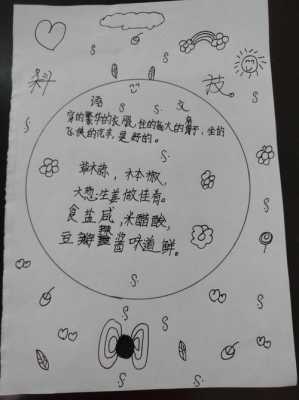 科 技
语 文
穿的繁华的衣服，住的高大的房子，坐的
飞快的汽车，是好的。
草木琼，木本椒，
大葱生姜做佳肴。
食盐咸，米醋酸，
豆瓣酱味道鲜。